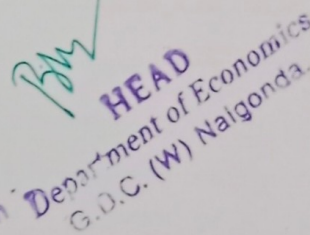 HEAD
Department of Economics
G.D.C. (W) Nalgonda.